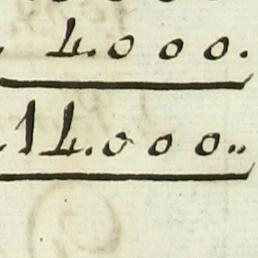 4.000.
14.000..